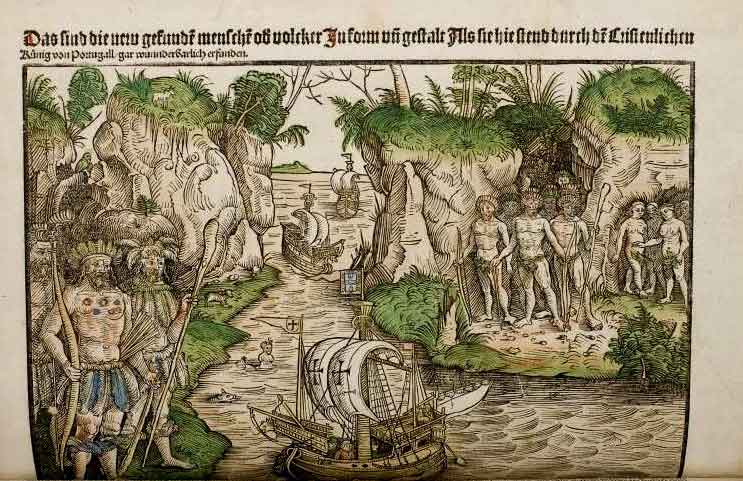 Das sind die new gefunden menschen oder volcker In form und gestalt Als sie hie stend durch den Cristenlichen
Künig von Portugall, gar wunnderbarlich erfunden.